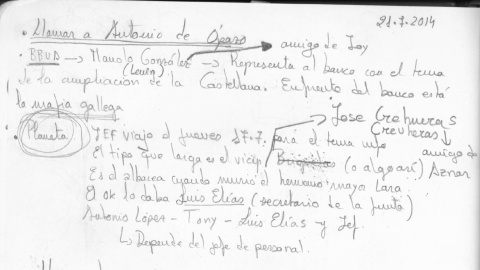 21-7-2014
• Llamar a Antonio de
• BBVA → Manolo González → Representa al banco con el tema
amigo de Joy
(Lewin)
de la ampliación de la Castellana. Enfrente del banco está
la mafia gallega
Jose Creheuras
(Creuheras)
• Planeta JEF viajo el jueves 17-7. para el tema info
amigo de
El tipo que larga es el vicep. (o algo así) Aznar
Es el albacea cuando murió el hermano mayo Lara
El ok lo daba Luis Elías (secretario de la junta)
Antonio López - Tony - Luis Elías y Jef.
↳ Depende del jefe de personal.